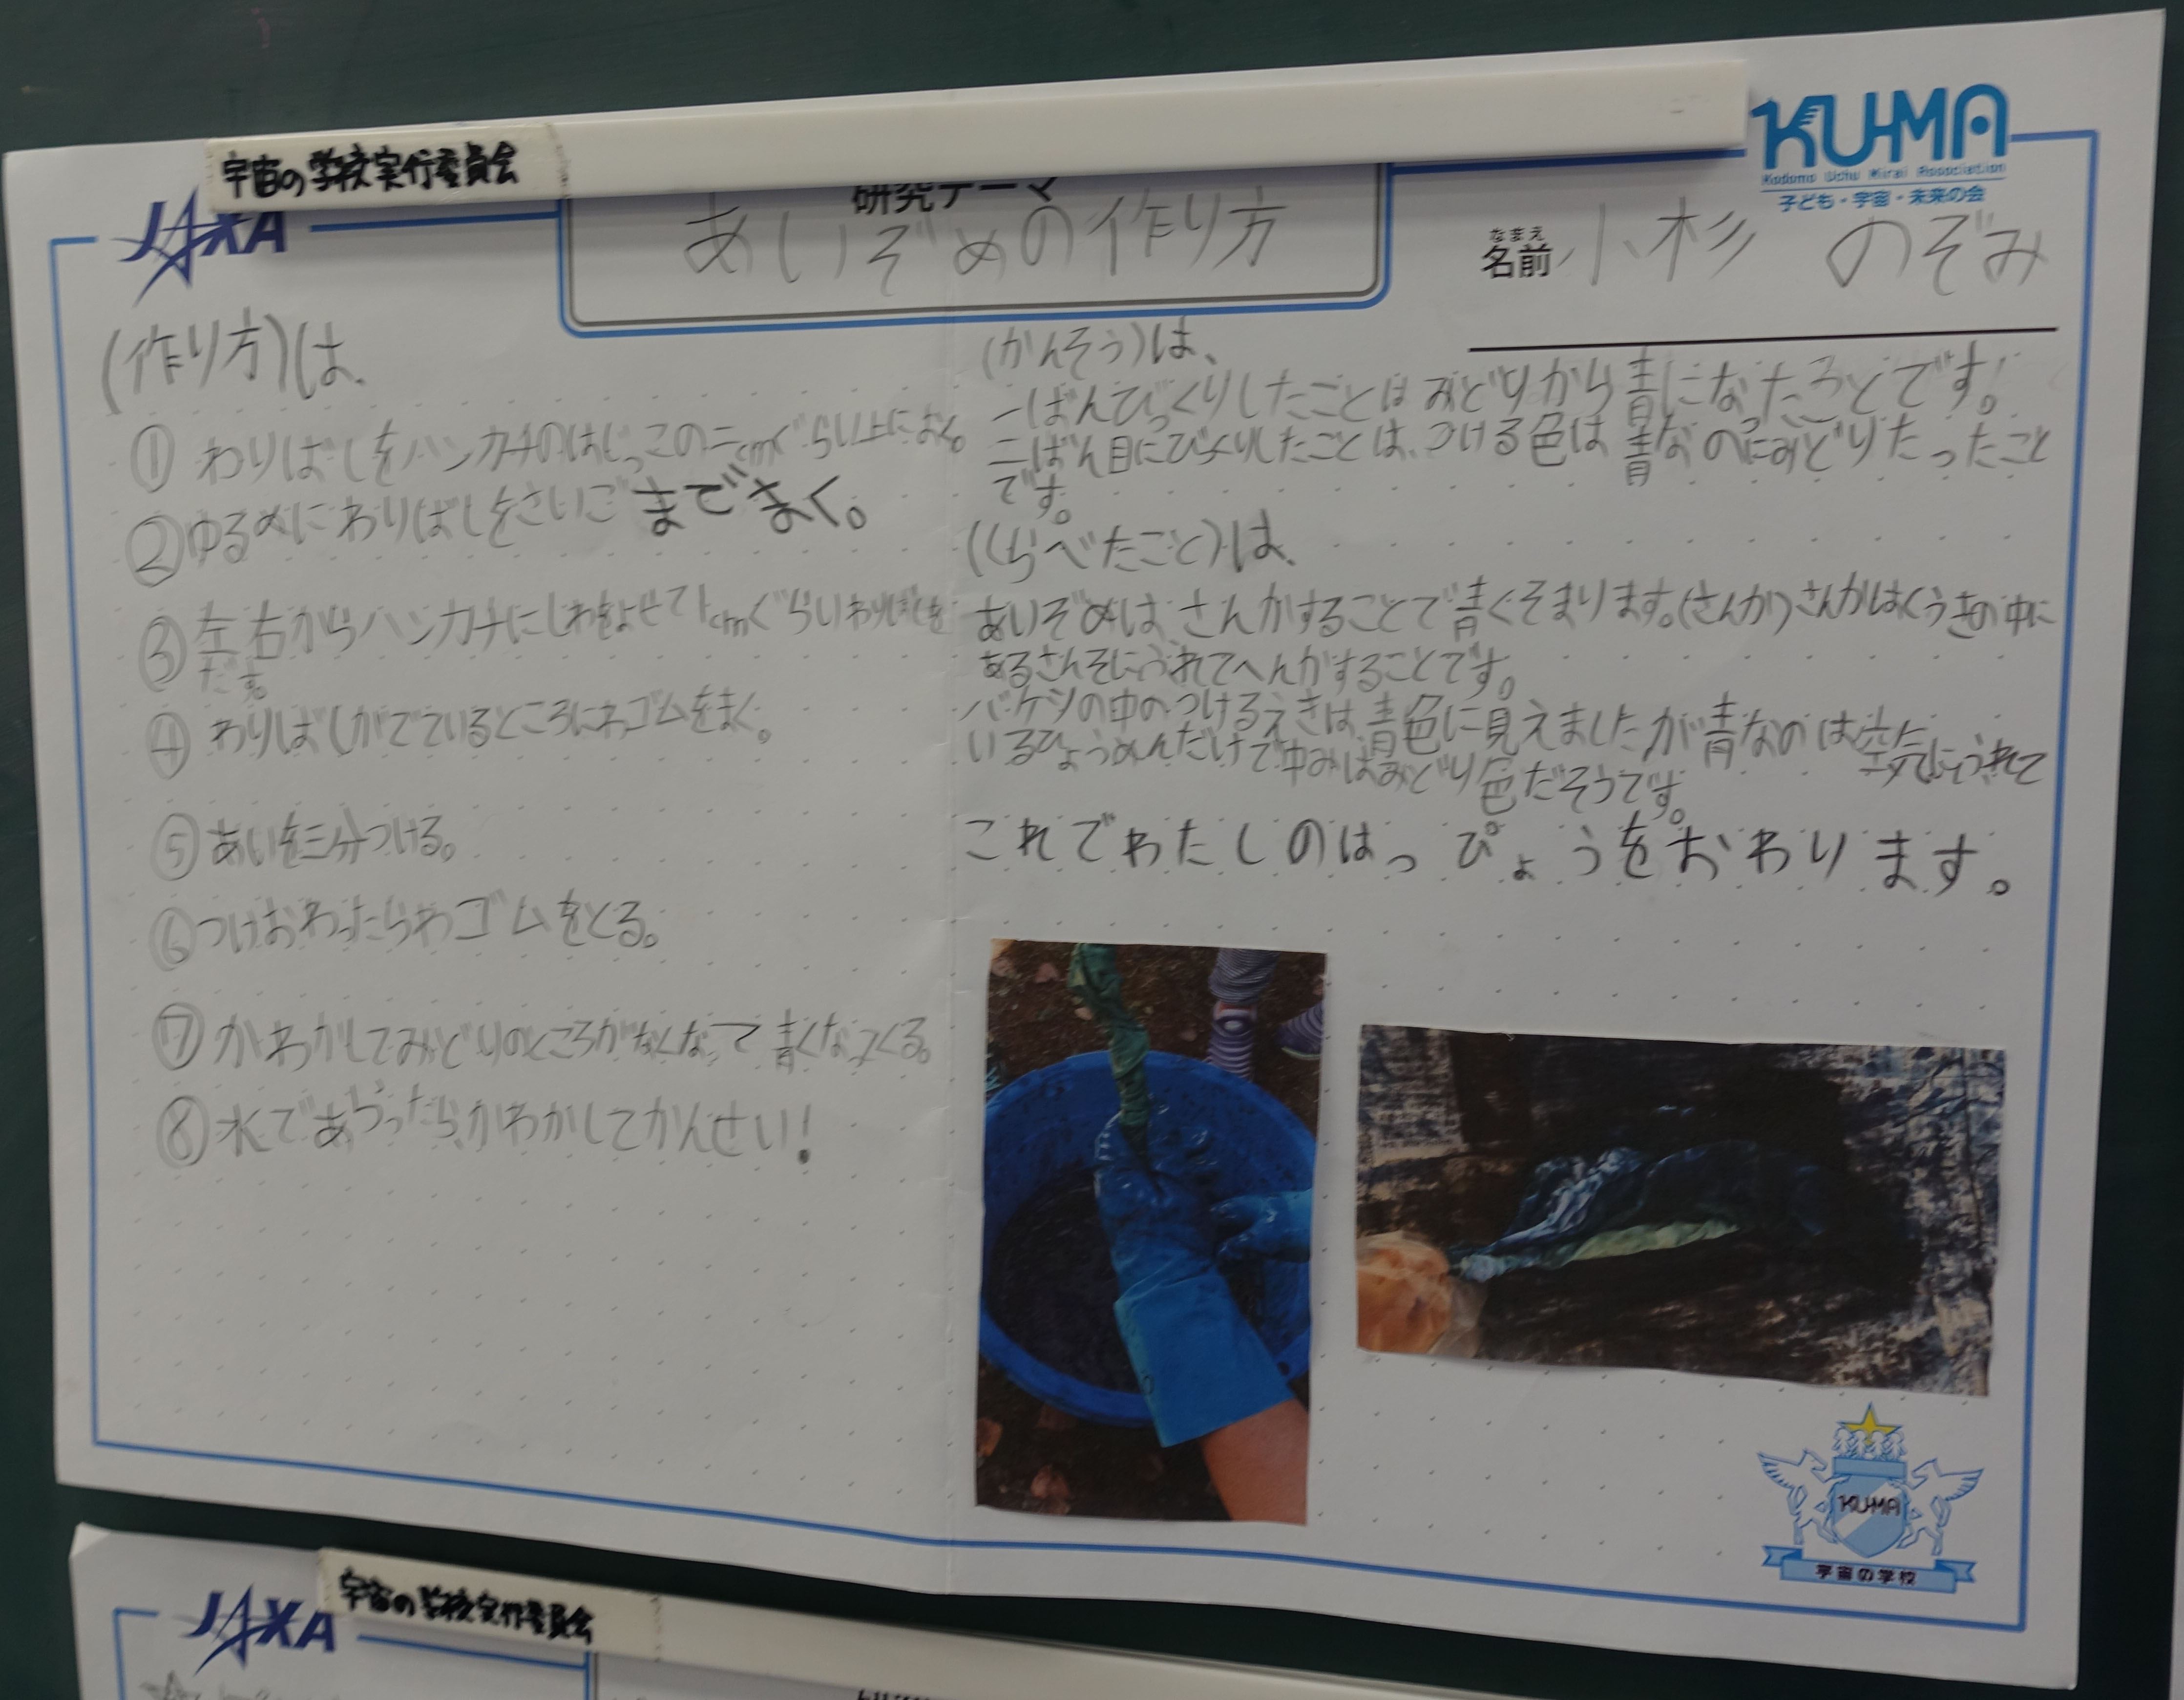 宇宙の学校実行委員会
JAXA
研究テーマ
あいぞめの作り方
KUMA
Kodomo Uchu Mirai Association
子ども・宇宙・未来の会
なまえ
名前 小杉 のぞみ
(作り方)は、
① わりばしをハンカチのはじっこの二cmぐらい上におく。
② ゆるめにわりばしをさいごまでまく。
③ 左右からハンカチにしわをよせて1cmぐらいわりばしを
だす。
④ わりばしがでているところにわゴムをまく。
⑤ あいを三分つける。
⑥ つけおわったらわゴムをとる。
⑦ かわかしてみどりのところがなくなって青くなってくる。
⑧ 水であらったら、かわかしてかんせい!
(かんそう)は、
一ばんびっくりしたことはみどりから青になったことです!
二ばん目にびっくりしたことは、つける色は青なのにみどりだったこと
です。
(くらべたこと)は、
あいぞめは、さんかすることで青くそまります。(さんか)さんかはくうきの中に
あるさんそにふれてへんかすることです。
バケツの中のつけるえきは、青色に見えましたが青なのは空気にふれて
いるひょうめんだけで中みはみどり色だそうです。
これでわたしのはっぴょうをおわります。
KUMA
宇宙の学校
宇宙の学校実行委員会
JAXA